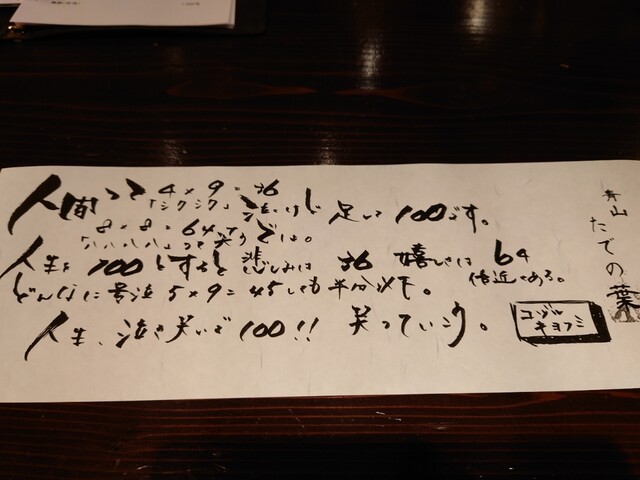 人間って4×9=36
「シクシク」泣いけど 足して100です。
8×8=64って
「ハハハハ」って笑う
人生を100とすると悲しみは36 嬉しさは64
倍近くある。
どんなに号泣5×9=45しても半分以下。
人生、泣き笑いで100!! 笑っていこう。
青山
たでの葉
コヅル
キヨフミ